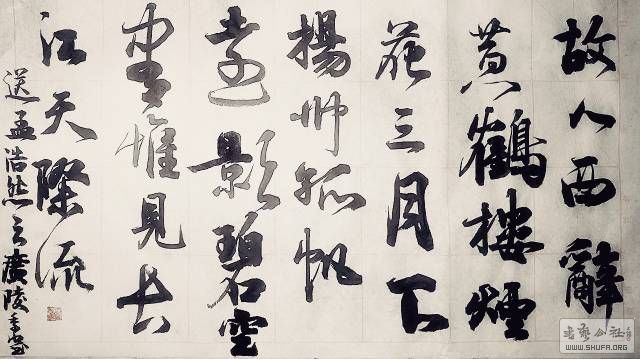 故人西辭
黄鶴樓煙
花三月下
揚州孤帆
遠影碧空
盡惟見長
江天際流
送孟浩然之廣陵
公社
WWW.SHUFA.ORG